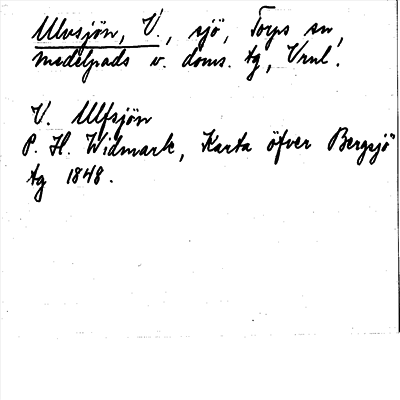 Ulvsjön, V., sjö, Torps sn,
Medelpads v. doms. tg, Vrnl.
V. Ulfsjön
P. H. Widmark, Karta öfver Bergsjö
tg 1848.